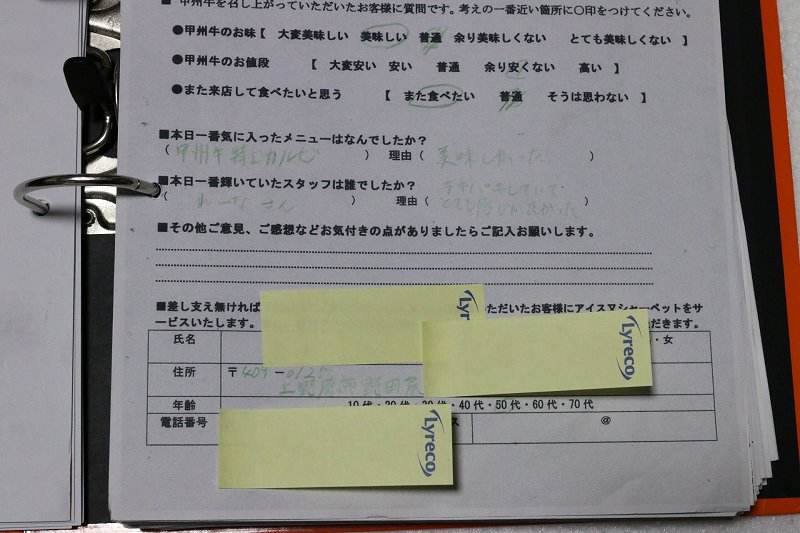 ■甲州牛を召し上がっていただいたお客様に質問です。考えの一番近い箇所に〇印をつけてください。
●甲州牛のお味【 大変美味しい 美味しい 普通 余り美味しくない とても美味しくない 】
●甲州牛のお値段 【 大変安い 安い 普通 余り安くない 高い 】
●また来店して食べたいと思う 【 また食べたい 普通 そうは思わない 】
■本日一番気に入ったメニューはなんでしたか？
( 甲州牛特上カルビ ) 理由 ( 美味しかった )
■本日一番輝いていたスタッフは誰でしたか？ テキパキしていて
( れーなさん ) 理由 ( とても感じが良かった )
■その他ご意見、ご感想などお気付きの点がありましたらご記入お願いします。
■差し支え無ければ いただいたお客様にアイスヌシャーベットをサ
ービスいたします。 ただきます。
Lyreco
Lyreco
氏名 ・女
住所 〒409-012
上野原市
年齢 10代・20代・30代・40代・50代・60代・70代
電話番号 ス @
Lyreco